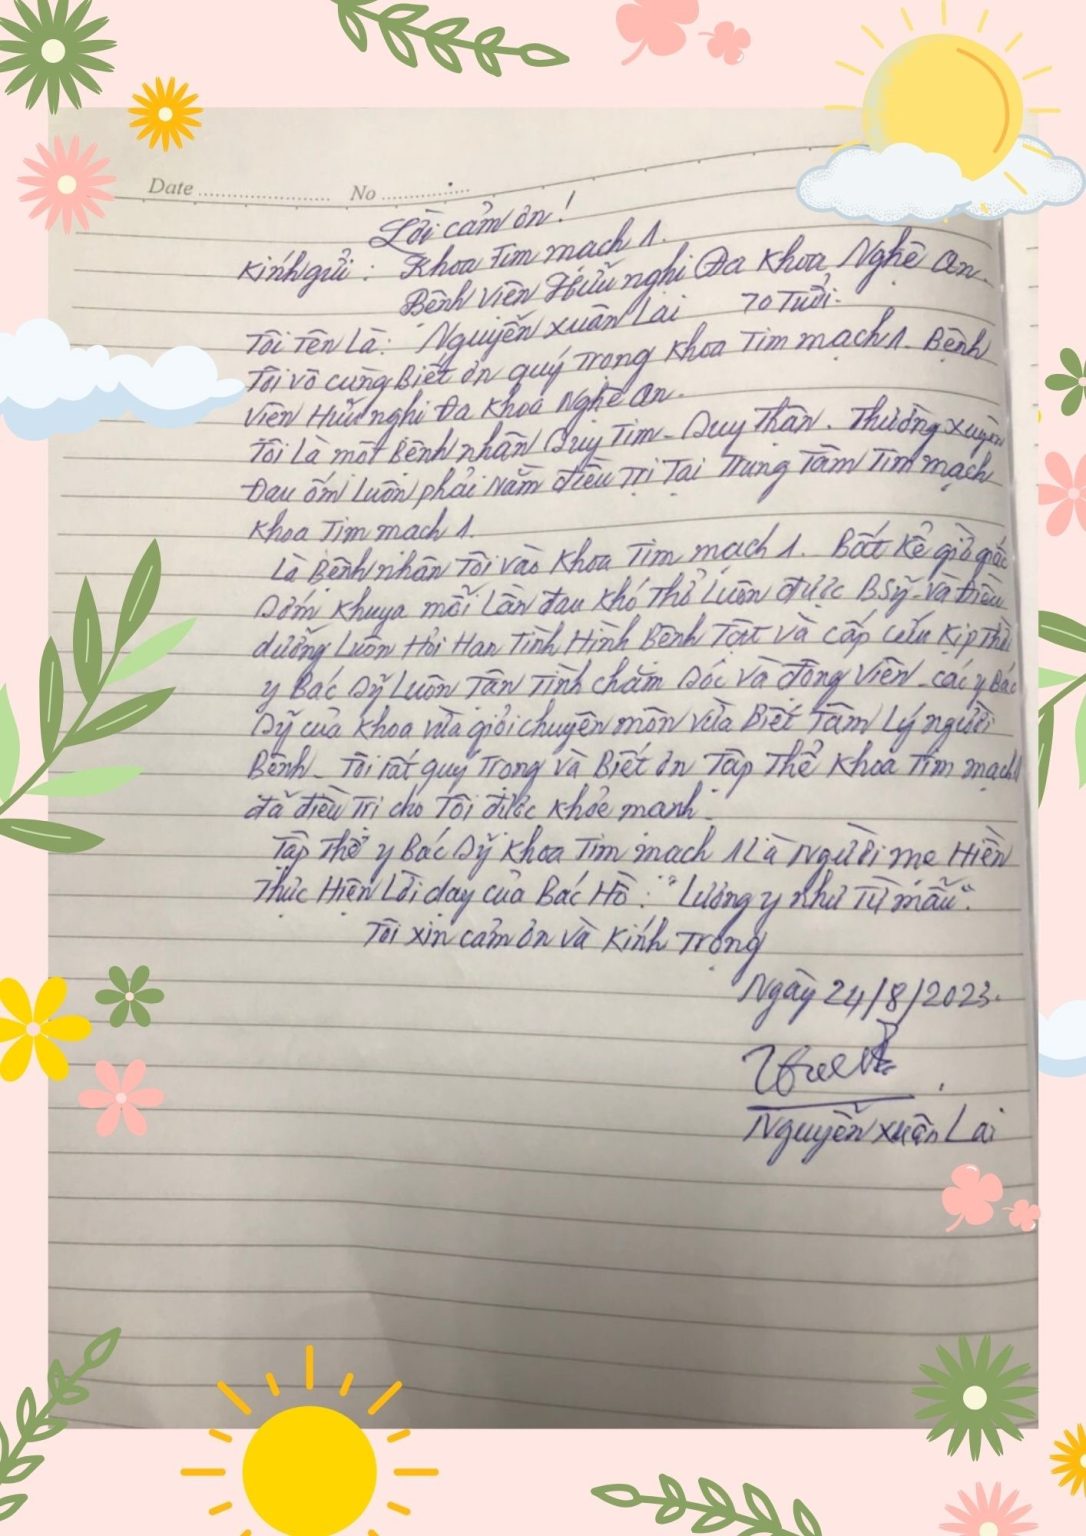 Date ................ No ................
Lời cảm ơn!
Kính gửi: Khoa Tim mạch 1.
Bệnh viện Hữu nghị Đa Khoa Nghệ An.
Tôi Tên Là: Nguyễn xuân Lai 70 Tuổi.
Tôi vô cùng Biết ơn quý Trọng Khoa Tim mạch 1. Bệnh
viện Hữu nghị Đa Khoa Nghệ An.
Tôi Là một Bệnh nhân Suy Tim - Suy Thận. Thường xuyên
Đau ốm Luôn phải Nằm điều Trị Tại Trung Tâm Tim mạch
Khoa Tim mạch 1.
Là Bệnh nhân Tôi vào Khoa Tim mạch 1. Bất Kể giờ giấc
Sớm Khuya mỗi Lần đau Khó Thở Luôn được BSỹ - và Điều
dưỡng Luôn Hỏi Han Tình Hình Bệnh Tật và cấp cứu Kịp Thời
y Bác Sỹ Luôn Tận Tình chăm Sóc và động viên - các y Bác
Sỹ của Khoa vừa giỏi chuyên môn vừa Biết Tâm Lý người
Bệnh - Tôi rất quý Trọng và Biết ơn Tập Thể Khoa Tim mạch 1
đã điều Trị cho Tôi được Khỏe mạnh.
Tập Thể y Bác Sỹ Khoa Tim mạch 1 Là Người mẹ Hiền
Thực Hiện Lời dạy của Bác Hồ: "Lương y như Từ mẫu".
Tôi xin cảm ơn và Kính Trọng
Ngày 24/8/2023.
Nguyễn xuân Lai